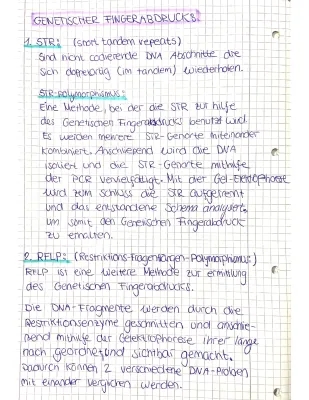 GENETISCHER FINGERABDRUCKS:
1. STR: (short tandem repeats)
Sind nicht codierende DNA Abschnitte die
sich doppelartig (im tandem) wiederholen.
STR-polymorphismus:
Eine Methode, bei der die STR zur hilfe
des Genetischen Fingerabdrucks benutzt wird.
Es werden mehrere STR-Genorte miteinander
kombiniert. Anschließend wird die DNA
isoliert und die STR-Genorte mithilfe
der PCR vervielfältigt. Mit der Gel-Elektrophorese
wird zum schluss die STR aufgetrennt
und das entstandene Schema analysiert.
um somit den Genetischen Fingerabdruck
zu erhalten.
2. RFLP: (Restriktions-Fragmentlängen-Polymorphismus)
RFLP ist eine weitere Methode zur ermittlung
des Genetischen Fingerabdrucks.
Die DNA-Fragmente werden durch die
Restriktionsenzyme geschnitten und anschlie-
ßend mithilfe der Gelektrophorese ihrer länge
nach geordnet und sichtbar gemacht.
Dadurch können 2 verschiedene DNA-Proben
mit einander verglichen werden.